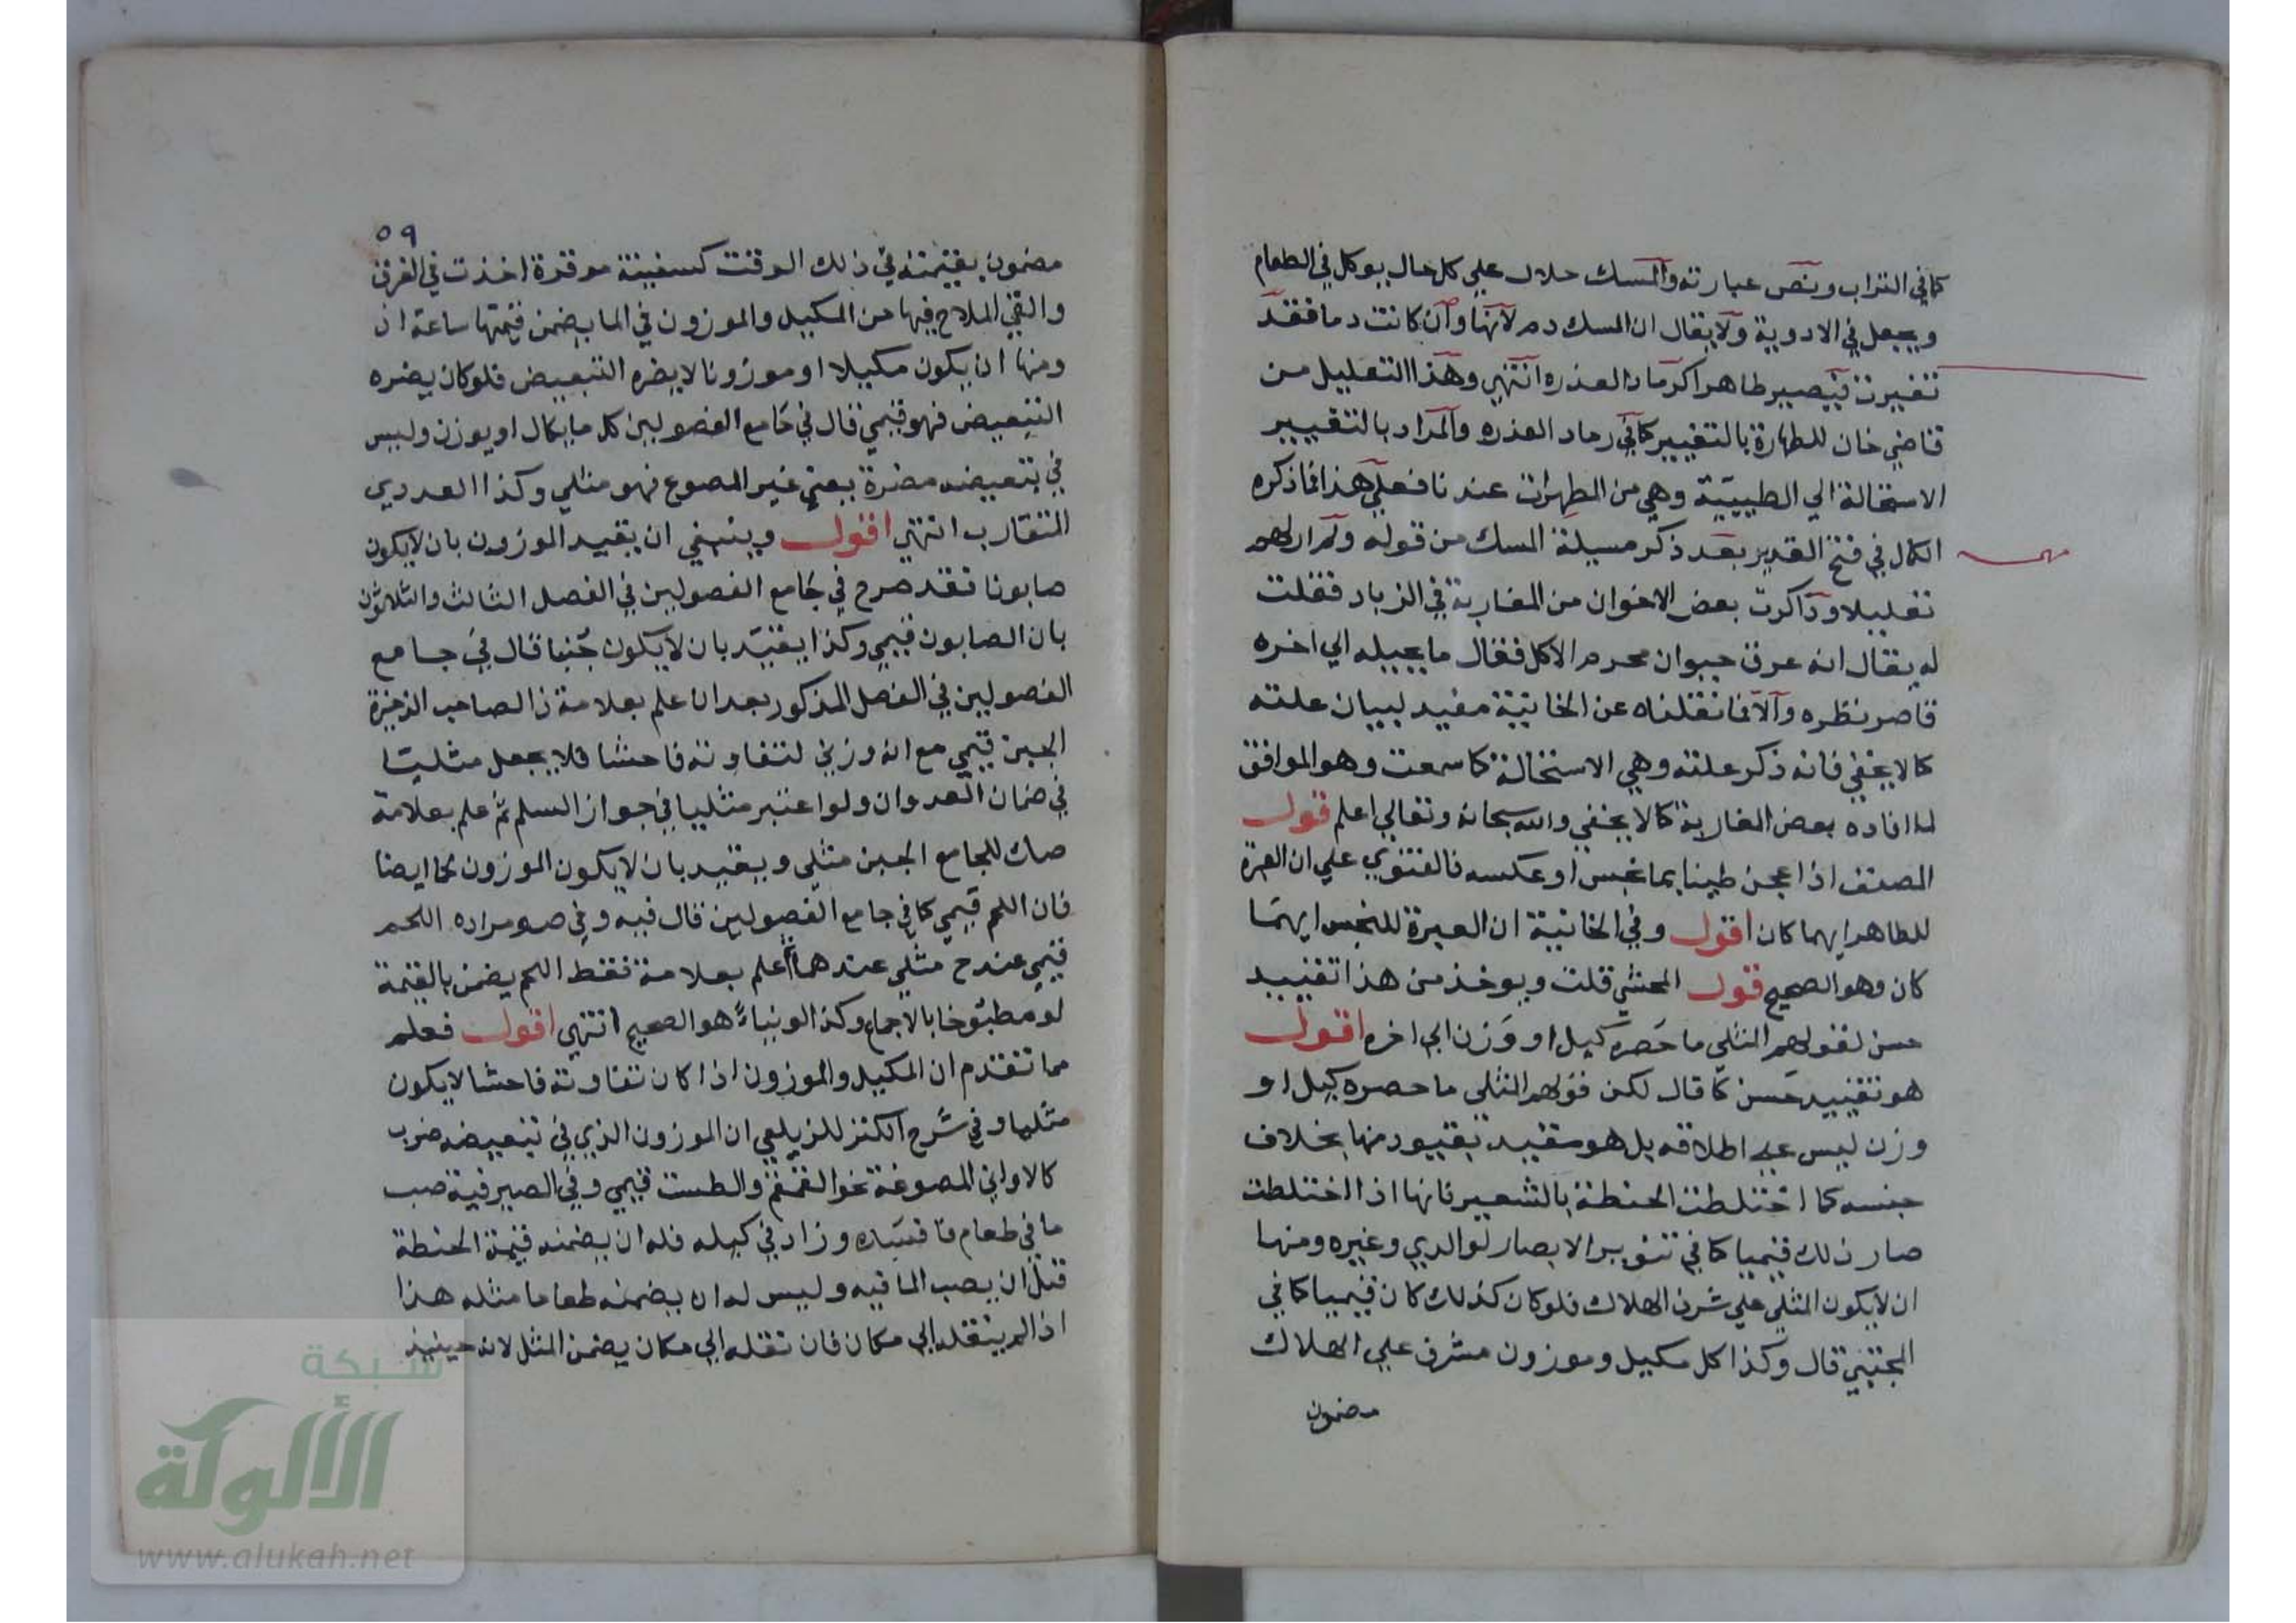 كما في التراب ونص عبارته والمسك حلال علي كل حال يوكل في الطعام
ويجعل في الادوية ولا يقال ان المسك دم لانها وان كانت دما فقد
تغيرت فيصير طاهرا كرماد العذره انتهي وهذا التعليل من
قاضي خان للطهارة بالتغيير كما في رماد العذره والمراد بالتغيير
الاستحالة الي الطيبية وهي من المطهرات عندنا فعلي هذا فما ذكره
الكمال في فتح القدير بعد ذكر مسيلة المسك من قوله ولم ار لهم
تعليلا وذاكرت بعض الاخوان من المغاربة في الزباد فقلت
له يقال انه عرق حيوان محرم الاكل فقال ما يحيله الي اخره
قاصر نظره والا فما نقلناه عن الخانية مفيد لبيان علته
كما لا يخفي فانه ذكر علته وهي الاستحالة كما سمعت وهو الموافق
لما افاده بعض المغاربة كما لا يخفي والله سبحانه وتعالي اعلم قول
المصنف اذا عجن طينا بما نجس او عكسه فالفتوي علي ان العبرة
للطاهر ايهما كان اقول وفي الخانية ان العبرة للنجس ايهما
كان وهو الصحيح قول المحشي قلت ويوخذ من هذا تقييد
حسن لقولهم المثلي ما حصره كيل او وزن الي اخره اقول
هو تقييد حسن كما قال لكن قولهم المثلي ما حصره كيل او
وزن ليس علي اطلاقه بل هو مقيد بقيود منها بخلاف
جنسه كما اختلطت الحنطة بالشعير فانها اذا اختلطت
صار ذلك قيميا كما في تنوير الابصار لوالدي وغيره ومنها
ان لا يكون المثلي علي شرف الهلاك فلو كان كذلك كان قيميا كما في
المجتبي قال وكذا كل مكيل وموزون مشرف علي الهلاك
مضمون
٥٩
مضمون بقيمته في ذلك الوقت كسفينة موقرة اخذت في الغرق
والقي الملاح فيها من المكيل والموزون في الما يضمن قيمتها ساعة اذ
ومنها ان يكون مكيلا او موزونا لا يضره التبعيض فلو كان يضره
التبعيض فهو قيمي قال في جامع الفصولين كل ما يكال او يوزن وليس
في تبعيضه مضرة يعني غير المصوع فهو مثلي وكذا العددي
المتقارب انتهي اقول وينبغي ان يقيد الموزون بان لا يكون
صابونا فقد صرح في جامع الفصولين في الفصل الثالث والثلاثون
بان الصابون قيمي وكذا يقيد بان لا يكون جبنا قال في جامع
الفصولين في الفصل المذكور بعد ان علم بعلامة ذ الصاحب الذخيرة
الجبن قيمي مع انه وزني لتفاوته فاحشا فلا يجعل مثليا
في ضمان العدوان ولو اعتبر مثليا في جواز السلم ثم علم بعلامة
صك للجامع الجبن مثلي ويقيد بان لا يكون الموزون لحما ايضا
فان اللحم قيمي كما في جامع الفصولين قال فيه وفي صومراده اللحم
قيمي عند ح مثلي عندهما ثم علم بعلامة فقط اللحم يضمن بالقيمة
لو مطبوخا بالاجماع وكذا لو نياء هو الصحيح انتهي اقول فعلم
مما تقدم ان المكيل والموزون اذا كان تفاوته فاحشا لا يكون
مثليا وفي شرح الكنز للزيلعي ان الموزون الذي في تبعيضه ضرب
كالاواني المصوغة نحو القمقم والطست قيمي وفي الصيرفية صب
ما في طعام فافسده وزاد في كيله فله ان يضمنه قيمة الحنطة
قبل ان يصب الما فيه وليس له ان يضمنه طعاما مثله هذا
اذا لم ينقله الي مكان فان نقله الي مكان يضمن المثل لانه حينيذ
شبكة
الألوكة
www.alukah.net